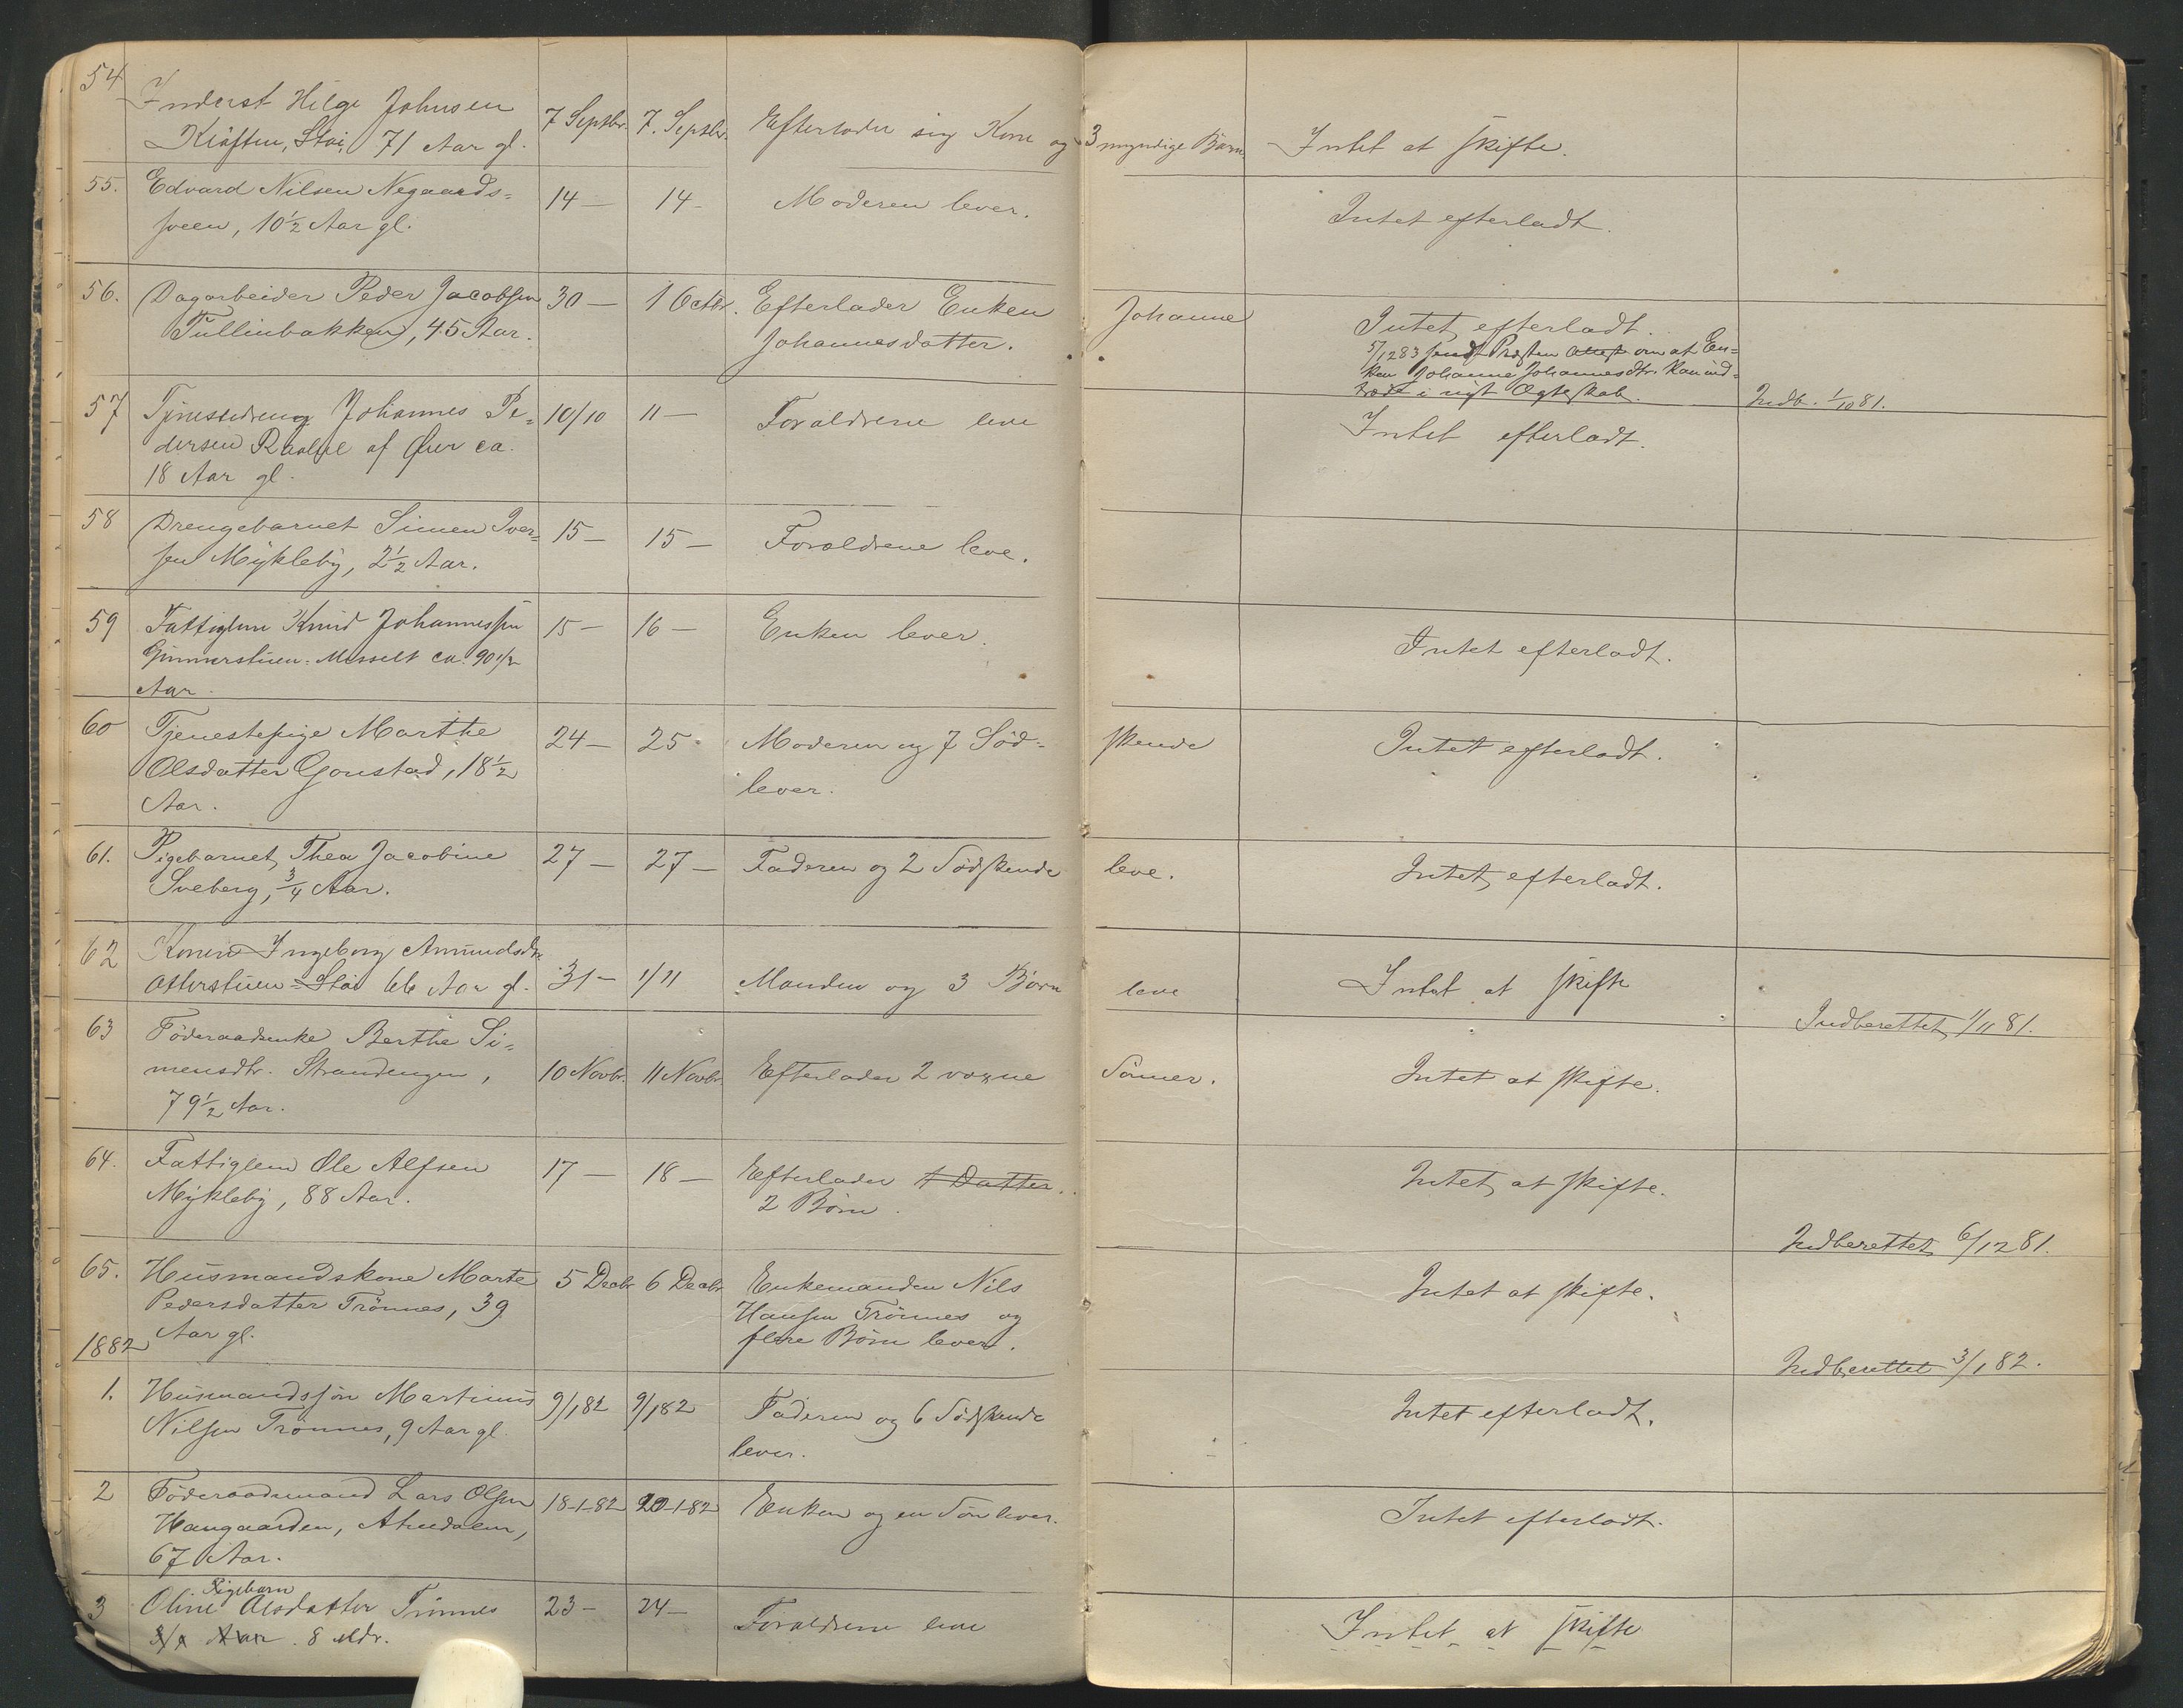 54
Inderst Helge Johnsen
Kløften, Stai, 71 Aar gl. 7 Septbr. 7. Septbr. Efterlader sig Kone og 3 myndige Børn Intet at skifte.
55. Edvard Nilsen Negaards-
sveen, 10½ Aar gl. 14 — 14 - Moderen lever. Intet efterladt.
56. Dagarbeider Peder Jacobsen 30 — 1 Octbr. Efterlader Enken Johanne Intet efterladt.
Tullinbakken, 45 Aar. Johannesdatter.
5/12 83 sendt Præsten Attest om at En-
ken Johanne Johannesdtr. kan ind-
træde i nyt Ægteskab.
Indb. 1/10 81.
57 Tjenestedreng Johannes Pe- 10/10 11 — Forældrene leve Intet efterladt.
dersen af ca.
18 Aar gl.
58 Drengebarnet Simen Iver- 15 — 15 — Forældrene leve.
sen Mykleby, 2½ Aar.
59 Fattiglem Knud Johannessen 15 — 16 — Enken lever. Intet efterladt.
Messelt ca. 90 1/2
Aar.
60 Tjenestepige Marthe 24 — 25 - Moderen og 7 Sød- skende Intet efterladt.
Olsdatter Gonstad, 18½ lever.
Aar.
61. Pigebarnet Thea Jacobine 27 — 27 — Faderen og 2 Sødskende leve. Intet efterladt.
Sveberg, ¾ Aar.
62 Konen Ingeborg Amundsdtr.
Stai 66 Aar gl. 31 — 1/11 Manden og 3 Børn leve Intet at skifte
Indberettet 1/11 81.
63 Föderaadsenke Berthe Si-
mensdtr. Strandengen, 10 Novbr. 11 Novbr. Efterlader 2 voxne Sönner. Intet at skifte.
79½ Aar.
64. Fattiglem Ole Alfsen 17 — 18 — Efterlader 1 Datter. Intet at skifte.
Mykleby, 88 Aar. 2 Børn.
Indberettet 6/12 81.
65. Husmandskone Marte 5 Decbr 6 Decbr Enkemanden Nils Intet at skifte.
Pedersdatter Trönnes, 39 Hansen Trönnes og
Aar gl. flere Börn lever.
1882
Indberettet 3/1 82.
1. Husmandssøn Martinus 9/1 82 9/1 82 Faderen og 6 Sødskende Intet efterladt.
Nilsen Trönnes, 9 Aar gl. lever.
2 Föderaadsmand Lars Olsen 18-1-82 20-1-82 Enken og en Søn lever. Intet efterladt.
Haugaarden, Atnedalen,
67 Aar.
Pigebarn
3 Oline Olsdatter Trönnes 23 — 24 — Forældrene leve Intet at skifte
Aar. 8 Mdr.